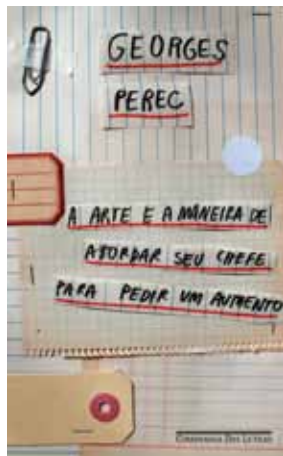 GEORGES
PEREC
A ARTE E A MANEIRA DE
ABORDAR SEU CHEFE
PARA PEDIR UM AUMENTO
COMPANHIA DAS LETRAS